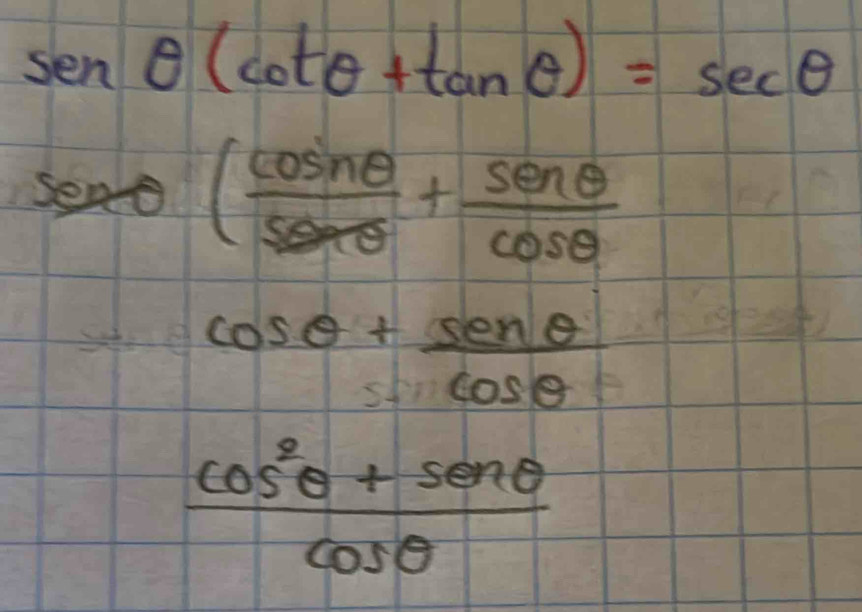 sen θ (cotθ + tan θ) = sec θ
senθ (cosnθ/senθ + senθ/cosθ
cosθ + sen θ/cosθ
cos²θ + senθ/cosθ